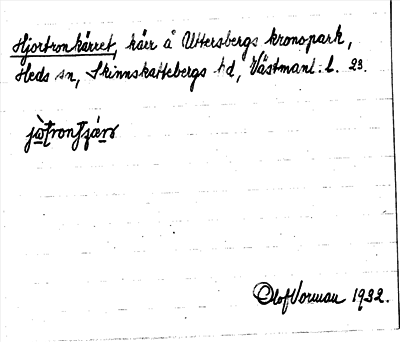 Hjortronkärret, kärr å Uttersbergs kronopark,
Heds sn, Skinnskattebergs hd, Västmanl. l. 23.
Olof Vorman 1932.